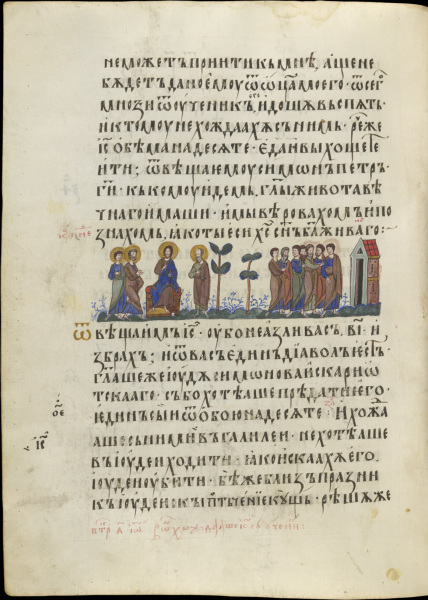 неможетъ прїити къ мнѣ, аще не
бѫдетъ дано емоу ѿ ѡ҃ца моего · ѿ сего
мнози ѿ оученикъ его идошѧ въспѧть ·
и ктомоу не хождаахѫ съ нимь · рече же
і҃с обѣманадесѧте · еда и вы хощете
ити; ѿвѣща емоу симѡнъ петръ ·
г҃и · къ комоу идемь, гл҃ы живота вѣ
чнаго имаши · и мы вѣровахомъ и по
знахомь, ꙗко ты еси х҃с сн҃ъ б҃а живаго :
ѿвѣща имъ і҃с · оу бо не аз ли вась, в҃і · и
збрахъ; и ѿ вась единъ дїаволъ есть ·
гл҃аше же іоудѫ симѡнова искариѡ
тскааго · сь бо хотѣаше прѣдати его ·
единъ сы ѿ обоюнадесѧте : И хожда
аше і҃с съ ними въ галилеи · не хотѣаше
въ іоудеи ходити · ꙗко искаахѫ его
іоудеи оубити · бѣ же близъ празни
къ іоудеискъ потъченїе кѫщь · рѣшѧ же